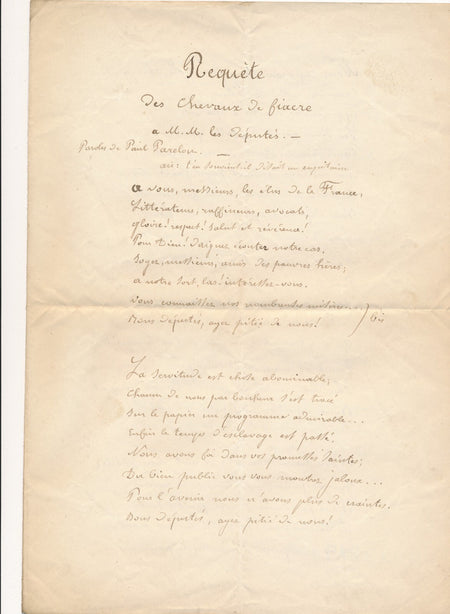 Requête
des chevaux de fiacre
a M.M. les députés. —
Paroles de Paul
air: t'en souviens-tu disait un capitaine
a vous, messieurs, les élus de la France,
Littérateurs, raffineurs, avocats,
gloire! respect! Salut et révérence!
Pour Dieu! daignez écouter notre cas.
Soyez, messieurs, amis des pauvres hères;
a notre sort, las! intéressez-vous.
Vous connaissez nos nombreuses misères... } bis
Bons députés, ayez pitié de nous!
La servitude est chose abominable;
Chacun de nous par bonheur s'est tracé
Sur le papier un programme admirable...
Enfin le temps d'esclavage est passé.
Nous avons foi dans vos promesses saintes;
Du bien public vous vous montrez jaloux...
Pour l'avenir nous n'avons plus de craintes.
Bons députés, ayez pitié de nous!